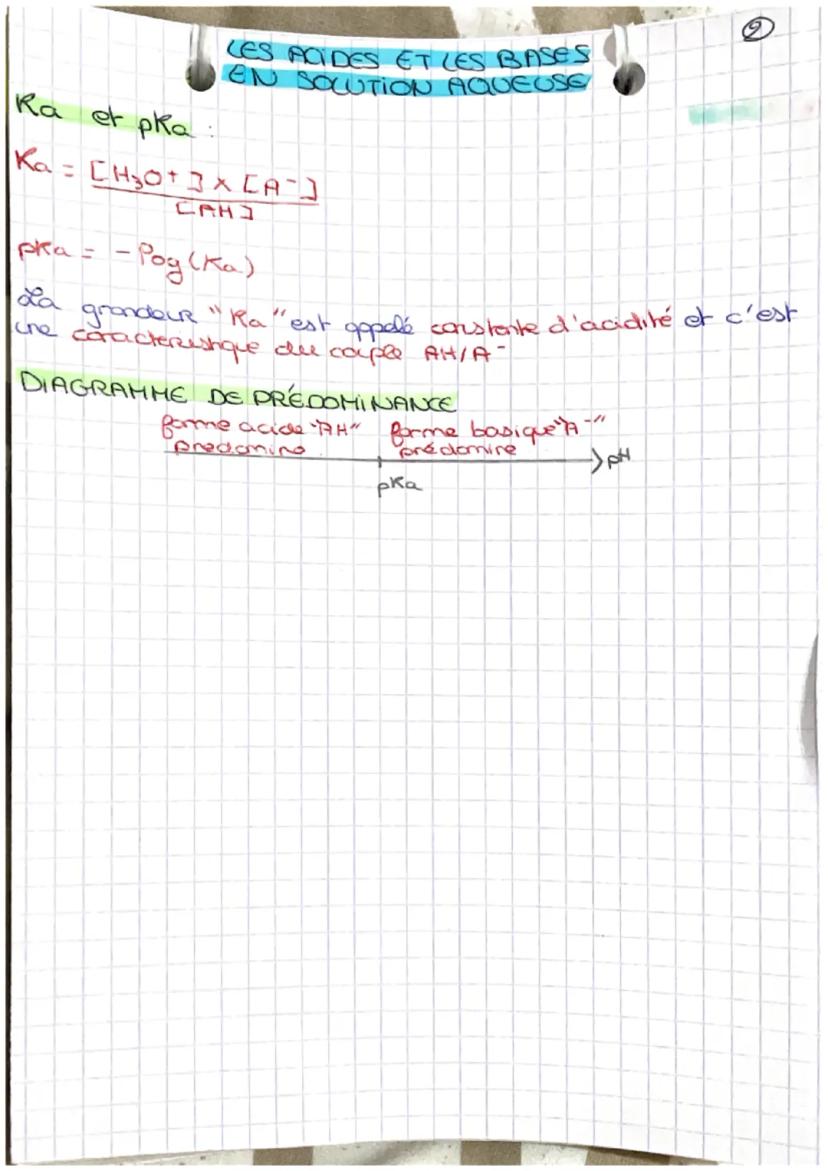 ②
LES ACIDES ET LES BASES
EN SOLUTION AQUEUSE
Ka et pKa :
Ka = [H₃O⁺] × [A⁻]
[AH]
pKa = - log (Ka)
La grandeur "Ka" est appelé constante d'acidité et c'est
une caracteristique du couple AH/A⁻
DIAGRAMME DE PRÉDOMINANCE
forme acide "AH" forme basique "A⁻"
predomine prédomine
pH
pKa